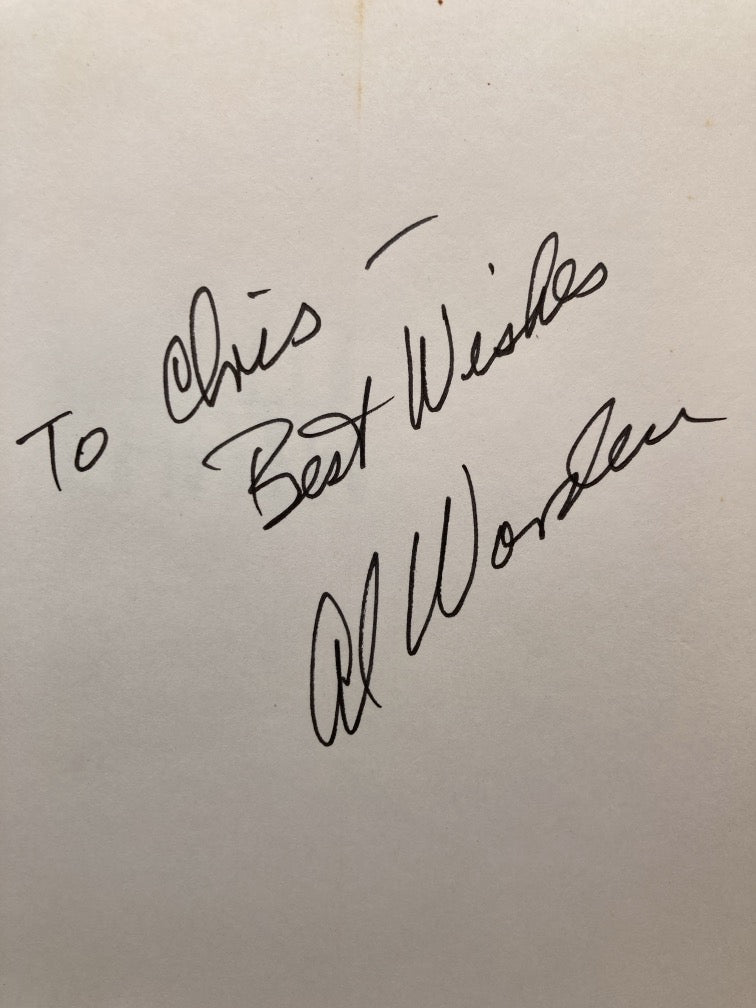 To Chris —
Best Wishes
Al Worden